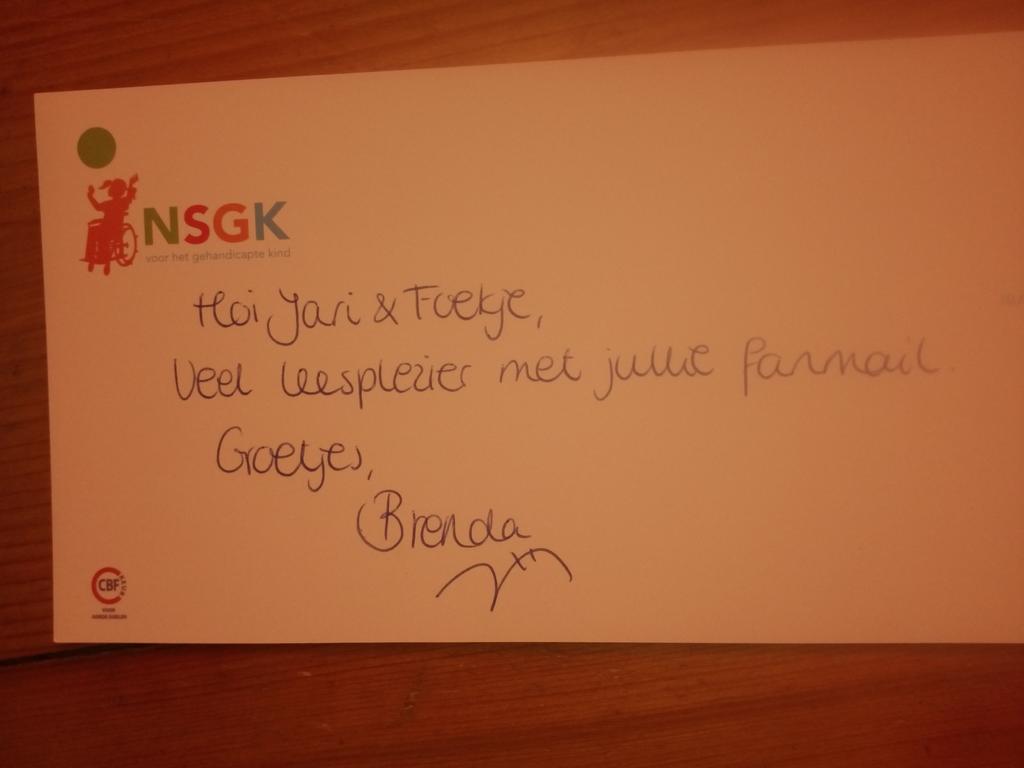 NSGK
voor het gehandicapte kind
Hoi Jari & Foekje,
Veel leesplezier met jullie fanmail.
Groetjes,
Brenda
xx
CBF
VOOR
GOEDE DOELEN